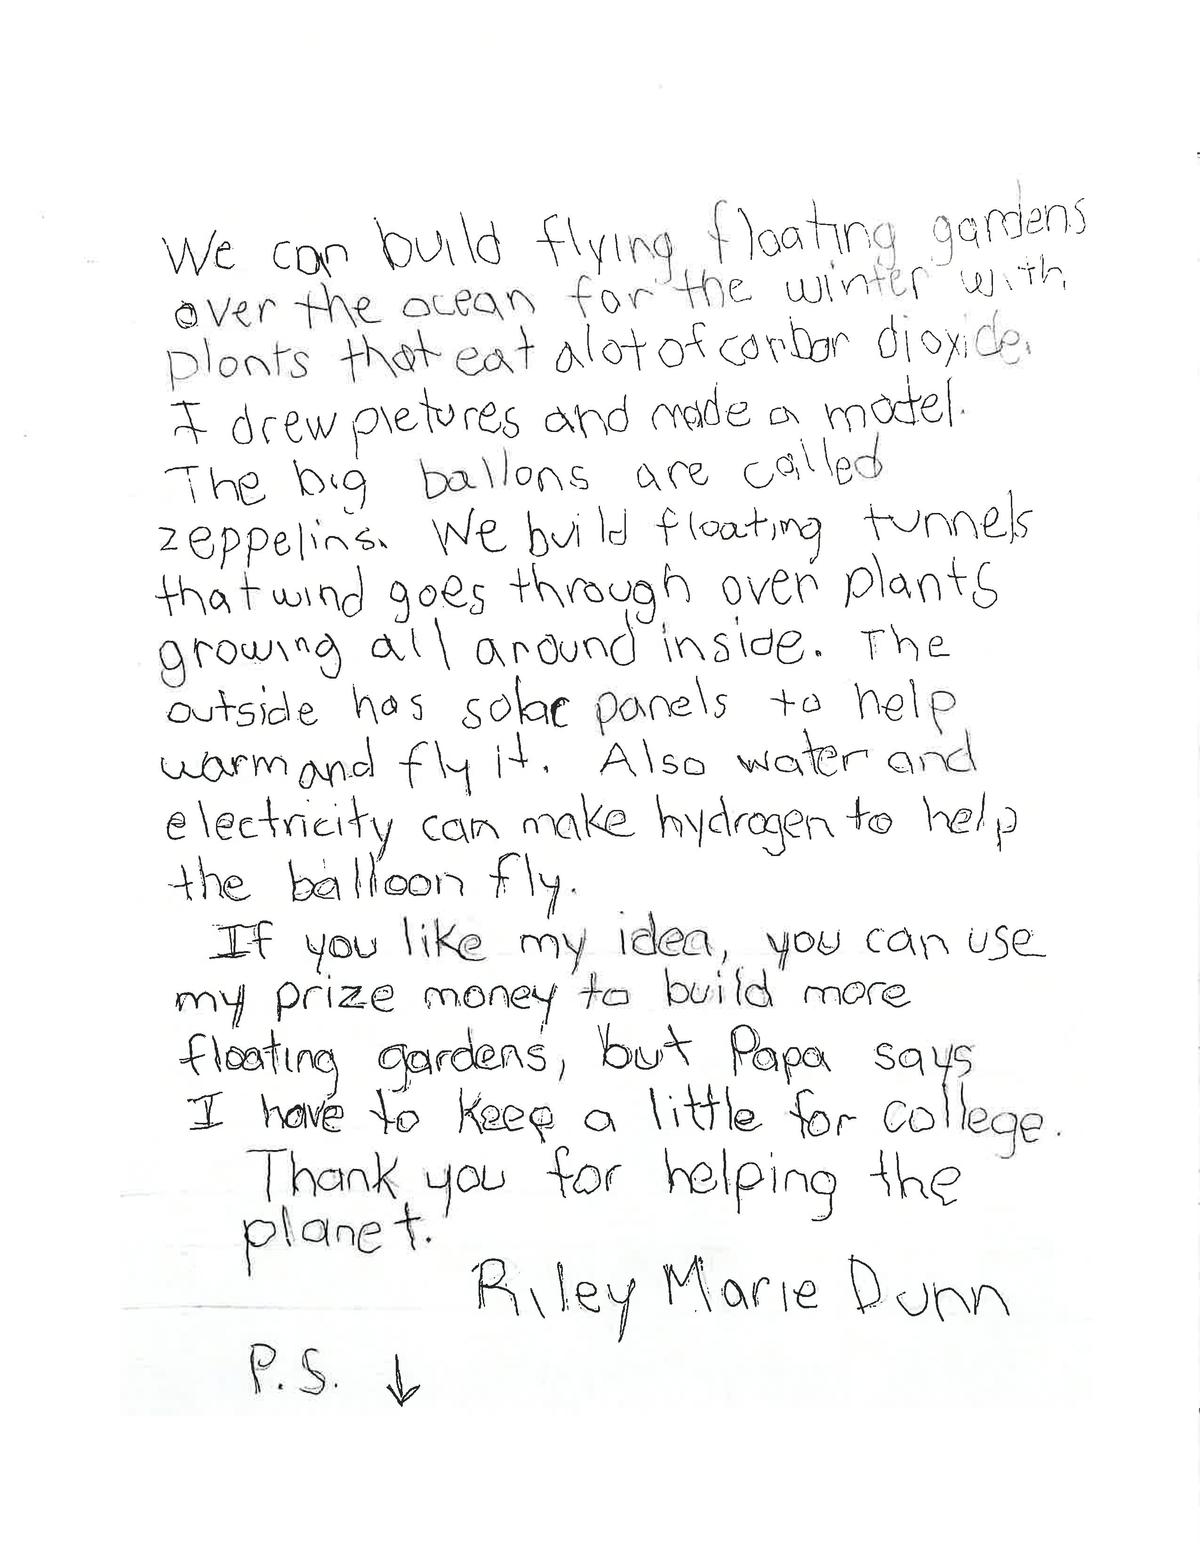 We can build flying floating gardens
over the ocean for the winter with
plants that eat alot of carbon dioxide.
I drew pictures and made a model.
The big ballons are called
zeppelins. We build floating tunnels
that wind goes through over plants
growing all around inside. The
outside has solar panels to help
warm and fly it. Also water and
electricity can make hydrogen to help
the balloon fly.
If you like my idea, you can use
my prize money to build more
floating gardens, but Papa says
I have to keep a little for college.
Thank you for helping the
planet.
Riley Marie Dunn
P.S. ↓